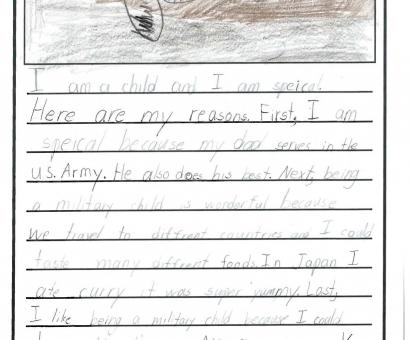 I am a child and I am speical.
Here are my reasons. First, I am
speical because my dad serves in the
U.S. Army. He also does his best. Next, being
a military child is wonderful because
we travel to diffrent countries and I could
taste many diffrent foods. In Japan I
ate curry it was super yummy. Last,
I like being a military child because I could